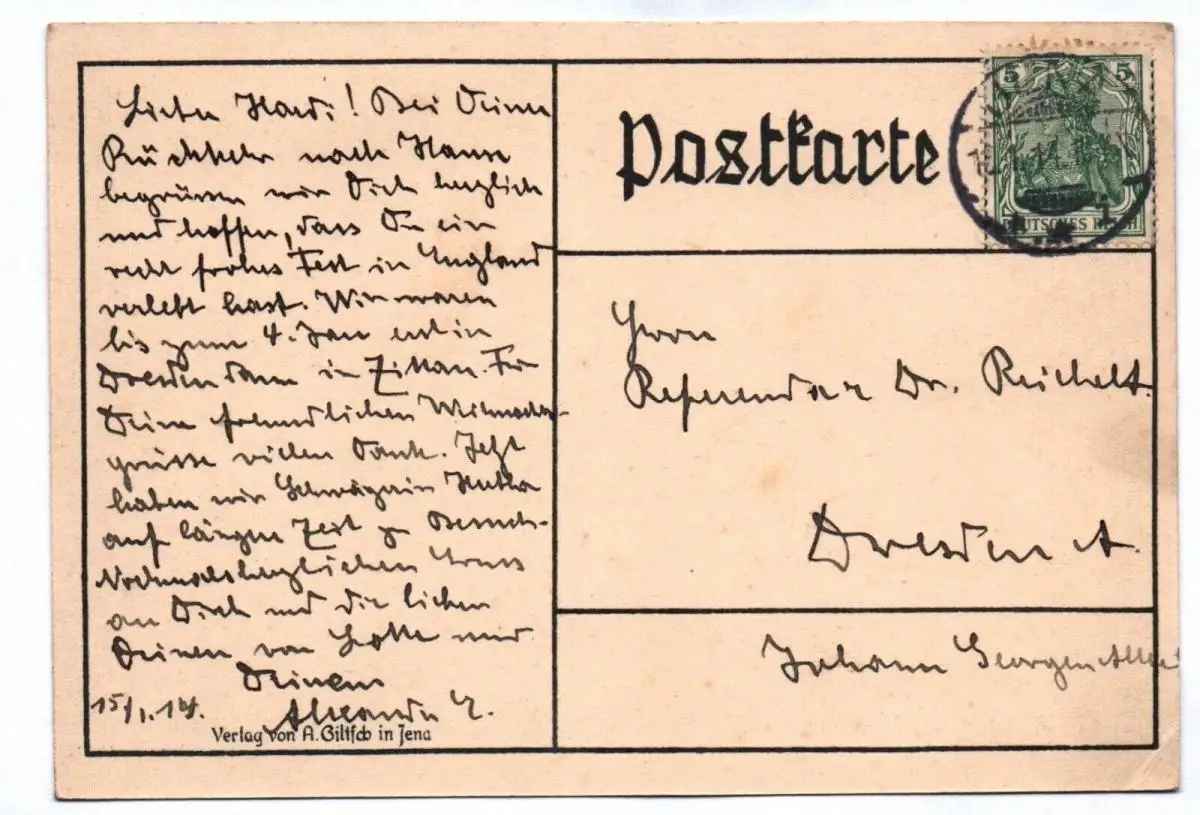 Lieber Hardi! Bei Deiner
Rückkehr nach Hause
begrüssen wir Dich herzlich
und hoffen, dass Du ein
recht frohes Fest in England
verlebt hast. Wir waren
bis zum 4. Jan erst in
Dresden dann in Zittau. Für
Deine freundlichen Weihnachts-
grüsse vielen Dank. Jetzt
haben wir Schwägerin
auf längere Zeit zu Besuch.
Nochmals herzlichen Gruss
an Dich und die lieben
Deinen von Lotte und
Deinem
15/1.14. Alexander
Verlag von A. Giltsch in Jena
Postkarte
5 5
14
DEUTSCHES REICH
1
Herrn
Referendar Dr. Reichelt
Dresden A.
Johann Georgen Allee